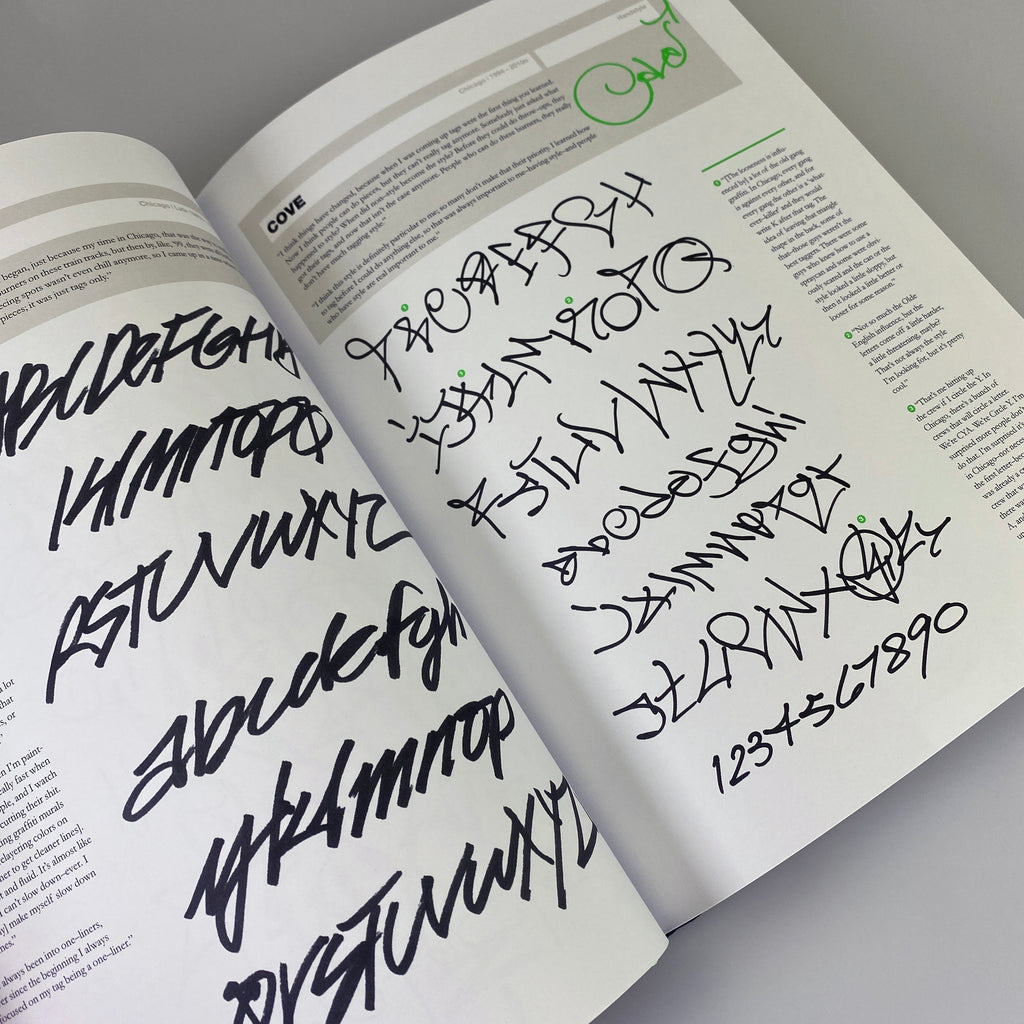 Chicago | Late
began, just because my time in Chicago, that was the
urners on these train tracks, but then by, like, '99, they were
ecing spots wasn't even chill anymore, so I came up in a
pieces; it was just tags only."
ABCDEFGH
IJKLMNOPQ
RSTUVWXYZ
abcdefgh
ijklmnop
qrstuvwxyz
a lot
that
s, or
n I'm paint-
eally fast when
ple, and I watch
cutting their shit.
ing graffiti murals
relayering colors on
her to get cleaner lines].
t and fluid. It's almost like
I can't slow down–ever. I
y] make myself slow down
nes."
always been into one–liners,
er since the beginning I always
focused on my tag being a one–liner."
Handstyle
Chicago | 1994 – 2010s
COVE
"I think things have changed, because when I was coming up tags were the first thing you learned.
Now I think people can do pieces, but they can't really tag anymore. Somebody just asked what
happened to style? When did non–style become the style? Before they could do throw–ups, they
got their tags, and now that isn't the case anymore. People who can do these burners, they really
don't have much tagging style."
"I think this style is definitely particular to me; so many don't make that their priority. I learned how
to tag before I could do anything else, so that was always important to me–having style–and people
who have style are real important to me."
ABCDEFGH
IJKLMNOPQ
RSTUVWXYZ
abcdefghi
jklmnopqr
stuvwxYyz
1234567890
"[The looseness is influ-
enced by] a lot of the old gang
graffiti. In Chicago, every gang
is against every other, and for
every gang the other is a 'what-
ever–killer' and they would
write K after that tag. The
idea of leaving that triangle
shape in the back, some of
that–those guys were the
best taggers. There were some
guys who knew how to use a
spraycan and some were obvi-
ously scared and the can or the
style looked a little sloppy, but
then it looked a little better or
looser for some reason."
"Not so much the Olde
English influence, but the
letters come off a little harder,
a little threatening, maybe?
That's not always the style
I'm looking for, but it's pretty
cool."
"That's me hitting up
the crew if I circle the Y. In
Chicago, there's a bunch of
crews that will circle a letter.
We're CYA. We're Circle Y. I'm
surprised more people don't
do that. I'm surprised it's
in Chicago–not
the first letter–
was already a
crew that
there was
A, an